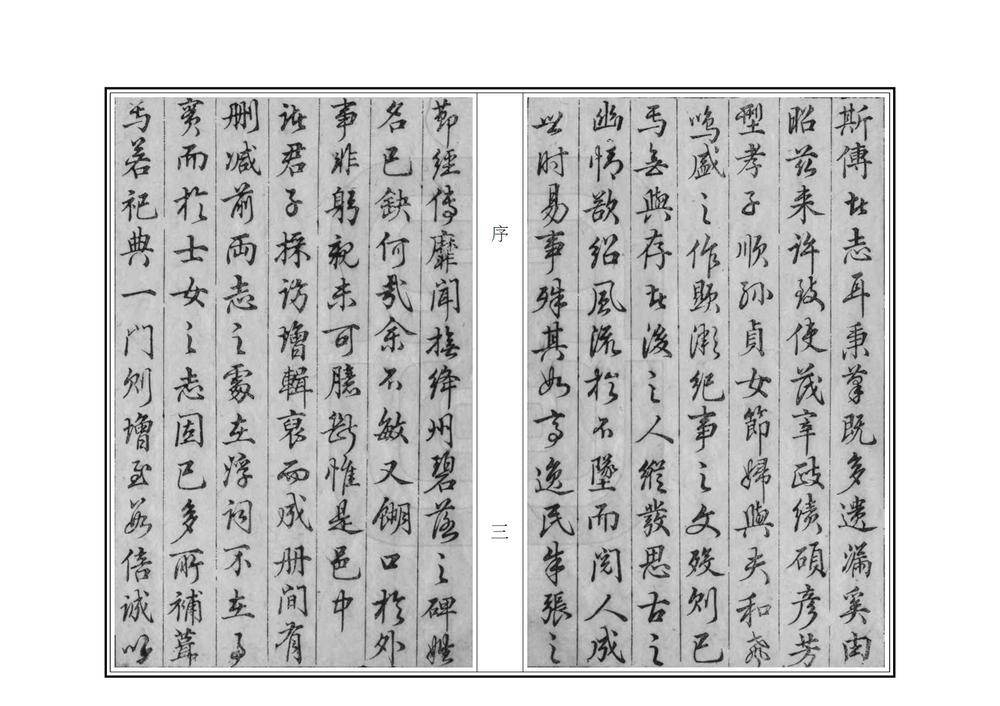 斯傳於志耳秉筆既多遺漏奚由
昭茲来許致使茂宰政績碩彦芳
型孝子順孙貞女節婦與夫和聲
鳴盛之作顯微紀事之文殁则已
焉無與存於後之人縱發思古之
幽情欲紹風流於不墜而閲人成
世时易事殊其如高逸民朱張之
節經傳靡闻撫绛州碧落之碑姓
名已缺何哉余不敏又餬口於外
事非躬親未可臆斷惟是邑中
諸君子採訪增輯裒而成册间有
删减前两志之處在浮词不在事
實而於士女之志固已多所補葺
焉若祀典一门则增至数倍诚以
序
三